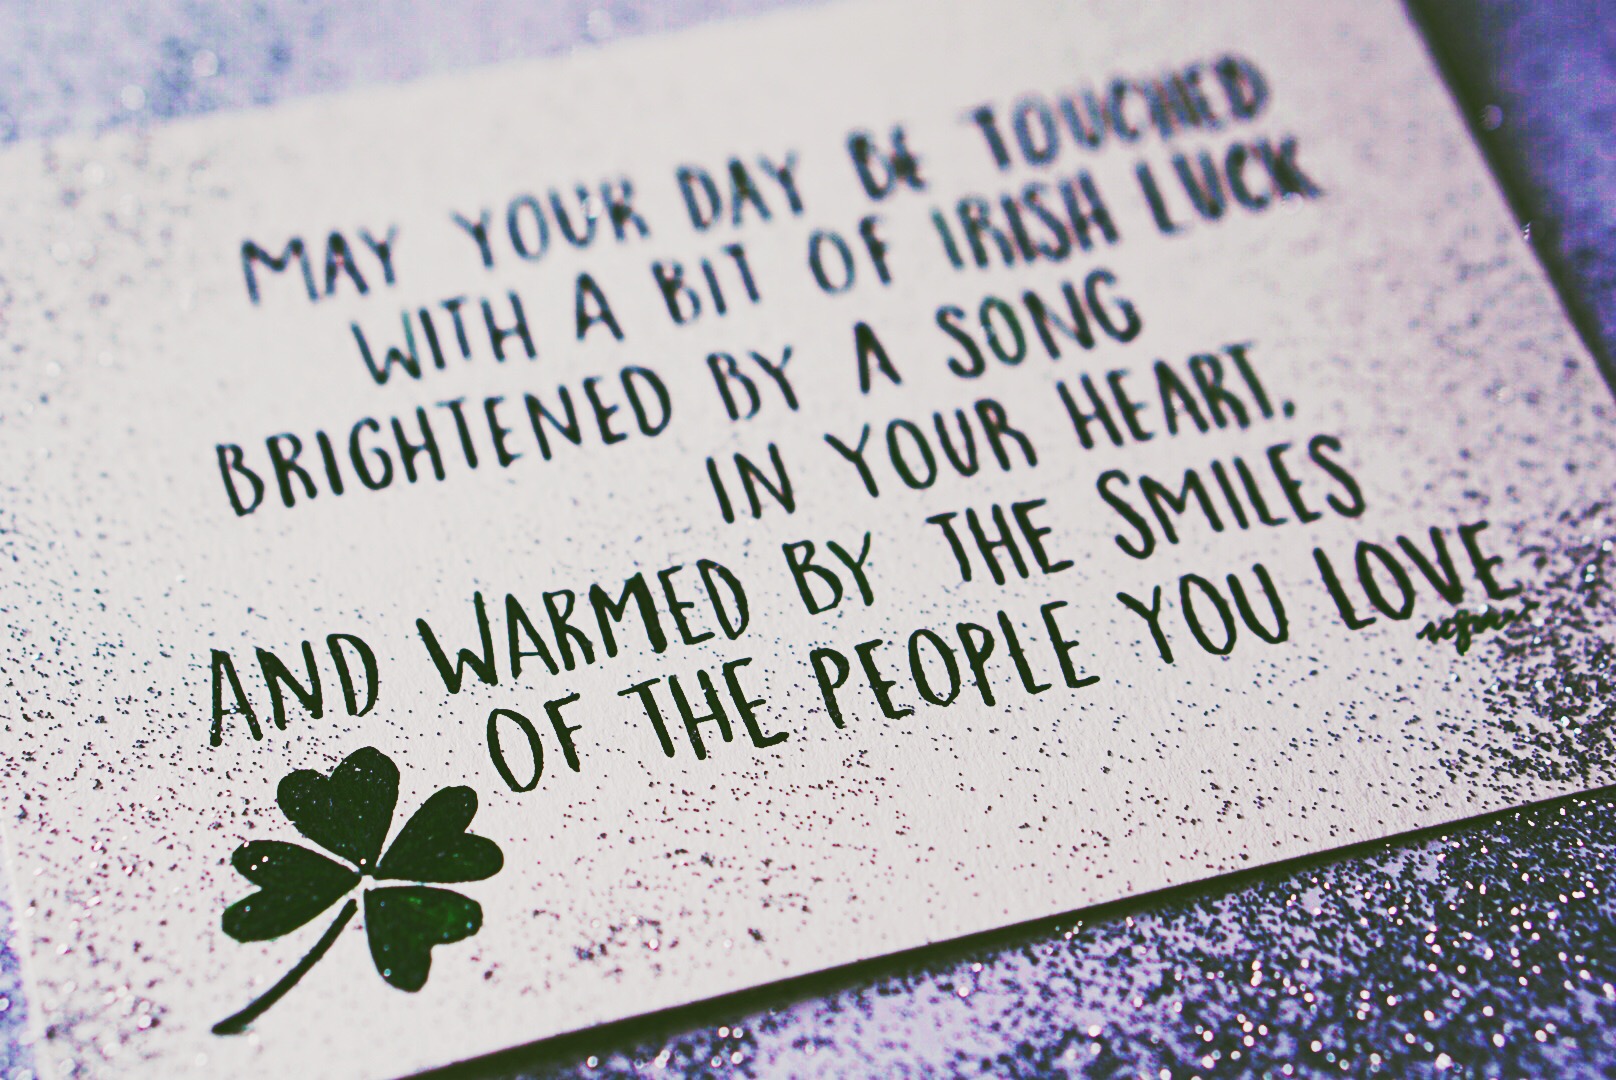 MAY YOUR DAY BE TOUCHED
WITH A BIT OF IRISH LUCK
BRIGHTENED BY A SONG
IN YOUR HEART,
AND WARMED BY THE SMILES
OF THE PEOPLE YOU LOVE